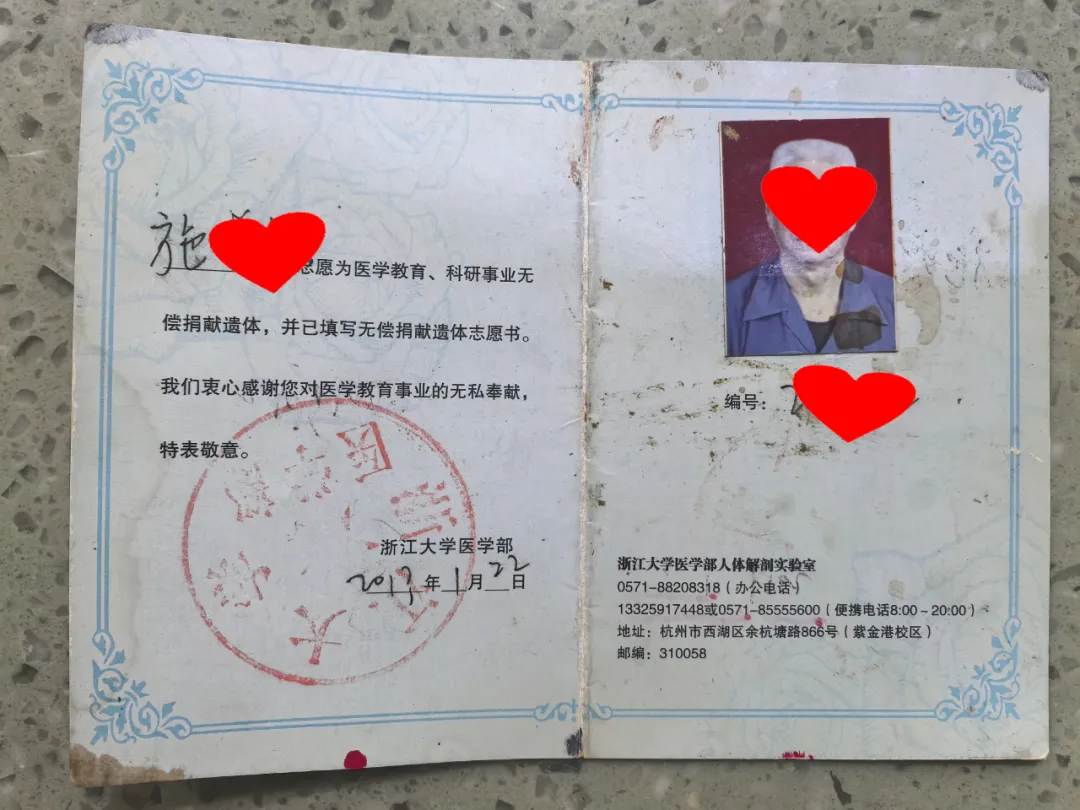 施 志愿为医学教育、科研事业无
偿捐献遗体，并已填写无偿捐献遗体志愿书。
我们衷心感谢您对医学教育事业的无私奉献，
特表敬意。
浙江大学医学部
2013年1月22日
浙江大学医学部
编号：
浙江大学医学部人体解剖实验室
0571-88208318（办公电话）
13325917448或0571-85555600（便携电话8:00～20:00）
地址：杭州市西湖区余杭塘路866号（紫金港校区）
邮编：310058